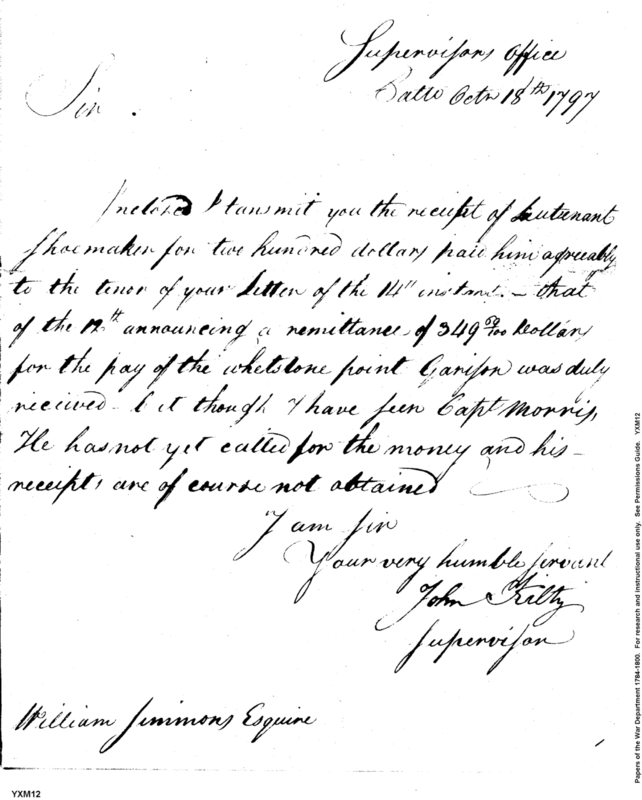 Supervisors Office
Balto Octr 18th 1797
Sir .
Inclosed I tansmit you the receipt of Lieutenant
Shoemaker for two hundred dollars paid him agreeably
to the tenor of your Letter of the 14th instant. - that
of the 12th announcing a remittance of 349 50/100 Dollars
for the pay of the whetstone point Garison was duly
recieved - but though I have seen Capt Morris,
He has not yet called for the money and his -
receipts are of course not obtained
I am Sir
Your very humble servant
John Kilty
Supervisor
William Simmons Esquire
YXM12
Papers of the War Department 1784-1800. For research and instructional use only. See Permissions Guide. YXM12